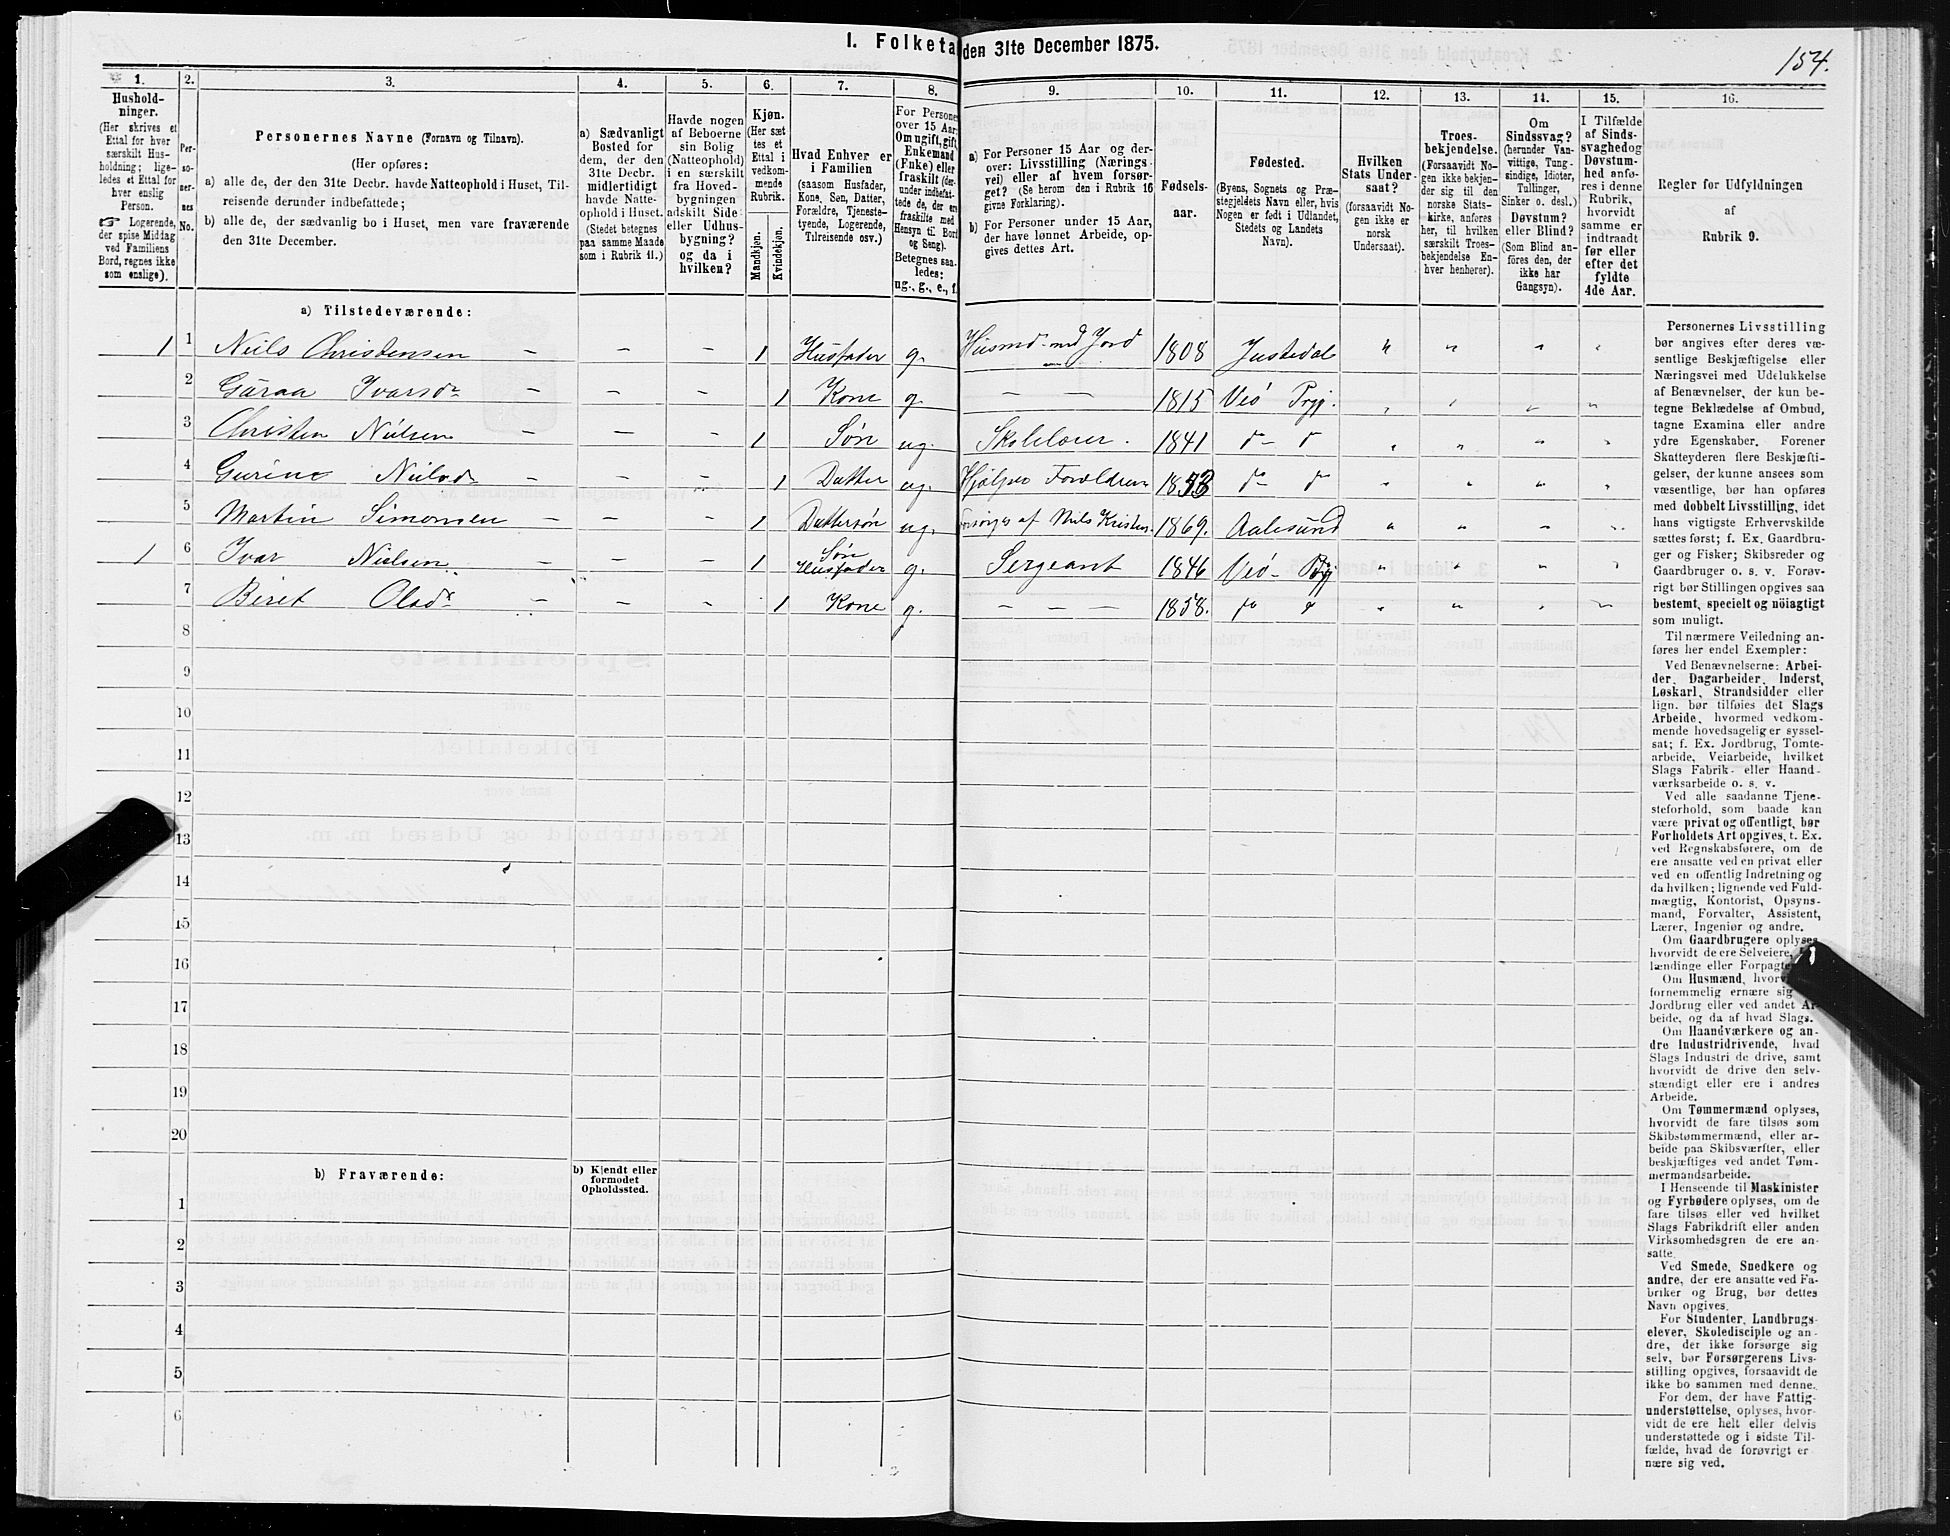 I. Folketa den 31te December 1875.
154.
1. 2. 3. 4. 5. 6. 7. 8. 9. 10. 11. 12. 13. 14. 15. 16.
Husholdninger.
(Her skrives et
Ettal for hver
særskilt Husholdning; ligeledes et Ettal for
hver enslig
Person.
☞ Logerende,
der spise Middag
ved Familiens
Bord, regnes ikke
som enslige).
Personernes
No.
Personernes Navne (Fornavn og Tilnavn).
(Her opføres:
a) alle de, der den 31te Decbr. havde Natteophold i Huset, Tilreisende derunder indbefattede;
b) alle de, der sædvanlig bo i Huset, men vare fraværende
den 31te December.
a) Sædvanligt
Bosted for
dem, der den
31te Decbr.
midlertidigt
havde Natteophold i Huset.
(Stedet betegnes
paa samme Maade
som i Rubrik 11.)
Havde nogen
af Beboerne
sin Bolig
(Natteophold)
i en særskilt
fra Hovedbygningen
adskilt Side-
eller Udhusbygning?
og da i
hvilken?
Kjøn.
(Her sættes et
Ettal i
vedkommende
Rubrik.
Mandkjøn.
Kvindekjøn.
Hvad Enhver er
i Familien
(saasom Husfader,
Kone, Søn, Datter,
Forældre, Tjenestetyende, Logerende,
Tilreisende osv.)
For Persone
over 15 Aar:
Om ugift, gift,
Enkemand
(Enke) eller
fraskilt (derunder indbefattede de, der ere
fraskilte med
Hensyn til Bord
og Seng).
Betegnes saaledes:
ug., g., e., f.
a) For Personer 15 Aar og derover: Livsstilling (Næringsvei) eller af hvem forsørget? (Se herom den i Rubrik 16
givne Forklaring).
b) For Personer under 15 Aar,
der have lønnet Arbeide, opgives dettes Art.
Fødselsaar.
Fødested.
(Byens, Sognets og Præstegjeldets Navn eller, hvis
Nogen er født i Udlandet,
Stedets og Landets
Navn).
Hvilken
Stats Undersaat?
(forsaavidt Nogen ikke er
norsk
Undersaat).
Troesbekjendelse.
(Forsaavidt Nogen ikke bekjender sig til den
norske Statskirke, anføres
her, til hvilken
særskilt Troesbekjendelse Enhver henhører).
Om
Sindssvag?
(herunder Vanvittige, Tungsindige, Idioter,
Tullinger,
Sinker o. desl.)
Døvstum?
eller Blind?
(Som Blind anføres den, der
ikke har
Gangsyn).
I Tilfælde
af Sindssvaghed og
Døvstumhed anføres i denne
Rubrik,
hvorvidt
samme er
indtraadt
før eller
efter det
fyldte
4de Aar.
Regler for Udfyldningen
af
Rubrik 9.
a) Tilstedeværende:
1 1 Niils Christensen – – – 1 Husfader g. Husmd. md Jord 1808 Justedal " " " "
2 Guraa Ivarsdr – – – 1 Kone g. – – 1815 Veø Prgj. " " " "
3 Christen Nielsen – – – 1 Søn ug. Skolelærer. 1841 do do " " " "
4 Gurine Nielsd – – – 1 Datter ug. Hjelper Forældrene 1853 do do " " " "
5 Martin Simonsen – – – 1 Dattersøn ug. Forsørges af Niels Kristen. 1869. Aalesund " " " "
1 6 Ivar Nielsen – – 1 Søn Husfader g. Sergeant 1846 Veø Prgj " " " "
7 Beret Olsdr – – – 1 Kone g. – – – 1858. do do " " " "
8
9
10
11
12
13
14
15
16
17
18
19
20
b) Fraværende:
b) Kjendt eller
formodet
Opholdssted.
1
2
3
4
5
6
Personernes Livsstilling
bør angives efter deres væsentlige Beskjæftigelse eller
Næringsvei med Udelukkelse
af Benævnelser, der kun betegne Beklædelse af Ombud,
tagne Examina eller andre
ydre Egenskaber. Forener
Skatteyderen flere Beskjæftigelser, der kunne ansees som
væsentlige, bør han opføres
med dobbelt Livsstilling, idet
hans vigtigste Erhvervskilde
sættes først; f. Ex. Gaardbruger og Fisker; Skibsreder og
Gaardbruger o. s. v. Forøvrigt bør Stillingen opgives saa
bestemt, specielt og nöiagtigt
som muligt.
Til nærmere Veiledning anføres her endel Exempler:
Ved Benævnelserne: Arbeider, Dagarbeider, Inderst,
Løskarl, Strandsidder eller
lign. bør tilføies det Slags
Arbeide, hvormed vedkommende hovedsagelig er sysselsat; f. Ex. Jordbrug, Tomtearbeide, Veiarbeide, hvilket
Slags Fabrik- eller Haandværksarbeide o. s. v.
Ved alle saadanne Tjenesteforhold, som baade kan
være privat og offentligt, bør
Forholdets Art opgives, t. Ex.
ved Regnskabsførere, om de
ere ansatte ved en privat eller
ved en offentlig Indretning og
da hvilken; lignende ved Fuldmægtig, Kontorist, Opsynsmand, Forvalter, Assistent,
Lærer, Ingeniør og andre.
Om Gaardbrugere oplyses,
hvorvidt de ere Selveiere,
lændinge eller Forpagte
Om Husmænd, hvorv
fornemmelig ernære sig
Jordbrug eller ved andet Arbeide, og da af hvad Slags.
Om Haandværkere og andre Industridrivende, hvad
Slags Industri de drive, samt
hvorvidt de drive den selvstændigt eller ere i andres
Arbeide.
Om Tømmermænd oplyses,
hvorvidt de fare tilsøs som
Skibstømmermænd, eller arbeide paa Skibsværfter, eller
beskjæftiges ved andet Tømmermandsarbeide.
I Henseende til Maskinister
og Fyrbødere oplyses, om de
fare tilsøs eller ved hvilket
Slags Fabrikdrift eller anden
Virksomhedsgren de ere ansatte.
Ved Smede, Snedkere og
andre, der ere ansatte ved Fabriker og Brug, bør dettes
Navn opgives.
For Studenter, Landbrugselever, Skoledisciple og andre, der ikke forsørge sig
selv, bør Forsørgerens Livsstilling opgives, forsaavidt de
ikke bo sammen med denne.
For dem, der have Fattigunderstøttelse, oplyses, hvorvidt de ere helt eller delvis
understøttede og i sidste Tilfælde, hvad de forøvrigt ernære sig ved.